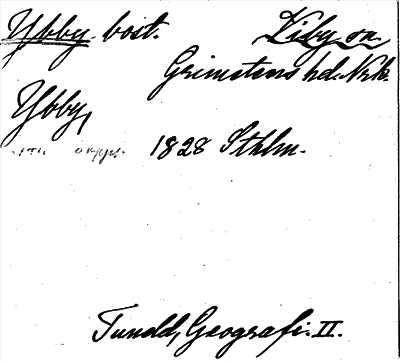 Ybby bost. Viby sn.
Grimstens hd. Nrk.
Ybby,
1828 Sthlm.
Tundd, Geografi. II.